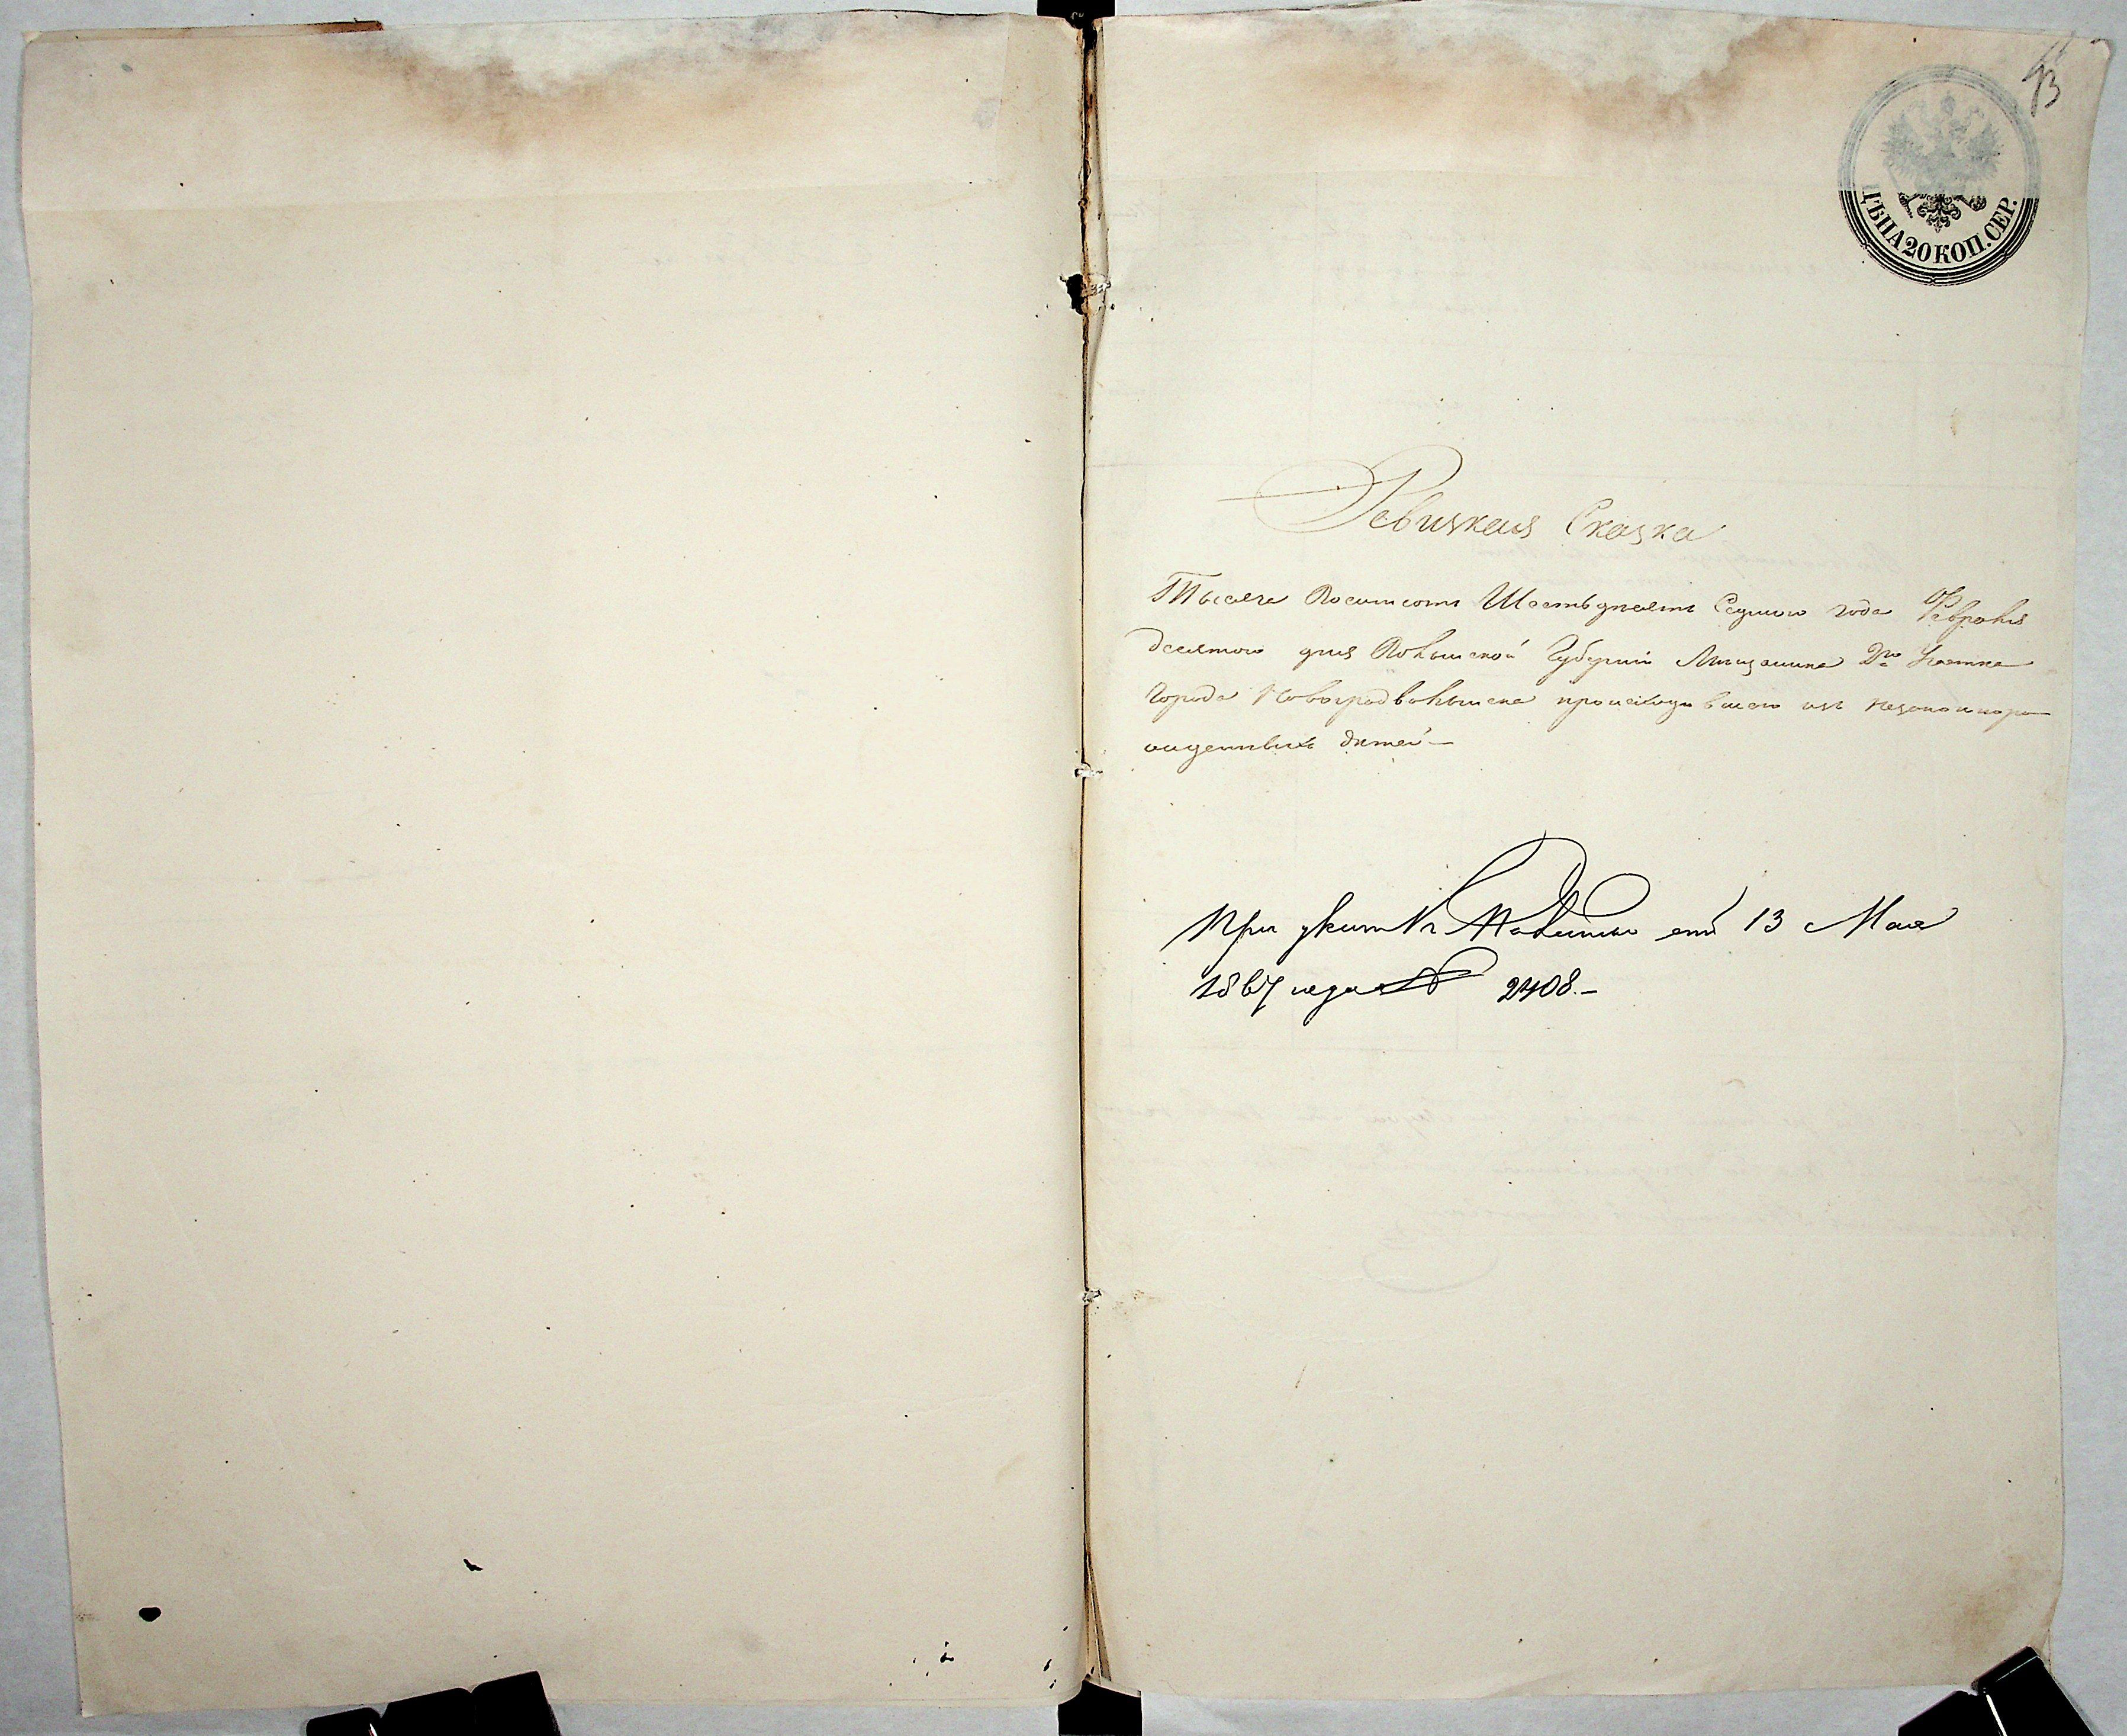 93
ЦѢНА 20 КОП. СЕР.
Ревизкая Сказка
Тысяча Восимсотъ Шестьдзсятъ Седмого года Февраля
десятого дня Волынской Губерніи Мѣщанина 2го Участка
Города Новоградволынска происходившаго изъ незаконноро
жденныхъ дѣтей —
При указѣ Палаты отъ 13 Мая
1867 года № 2408. —